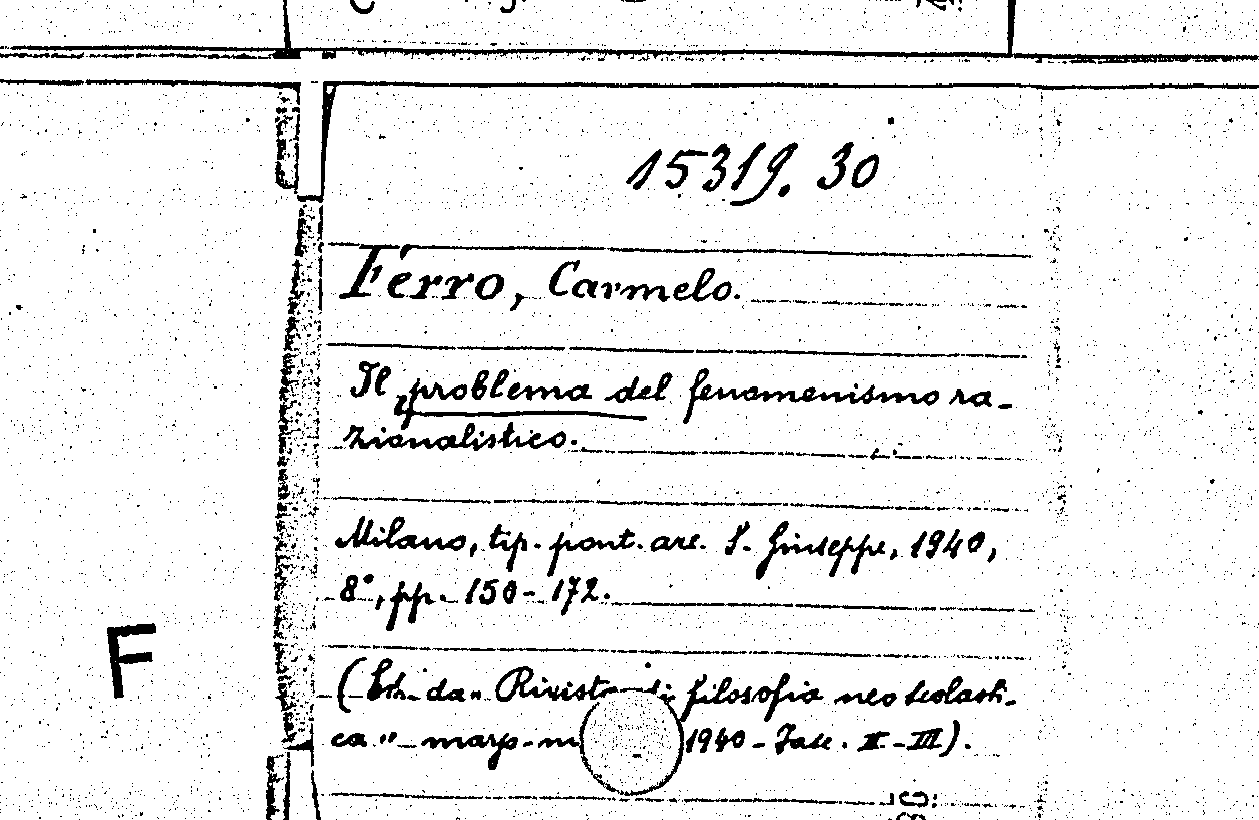 15319. 30
Ferro, Carmelo.
Il problema del fenomenismo ra-
zionalistico.
Milano, tip. pont. arc. S. Giuseppe, 1940,
8°, pp. 150-172.
F
(Estr. da "Rivista di filosofia neoscolasti-
ca" - 1940 - Fasc. II-III).